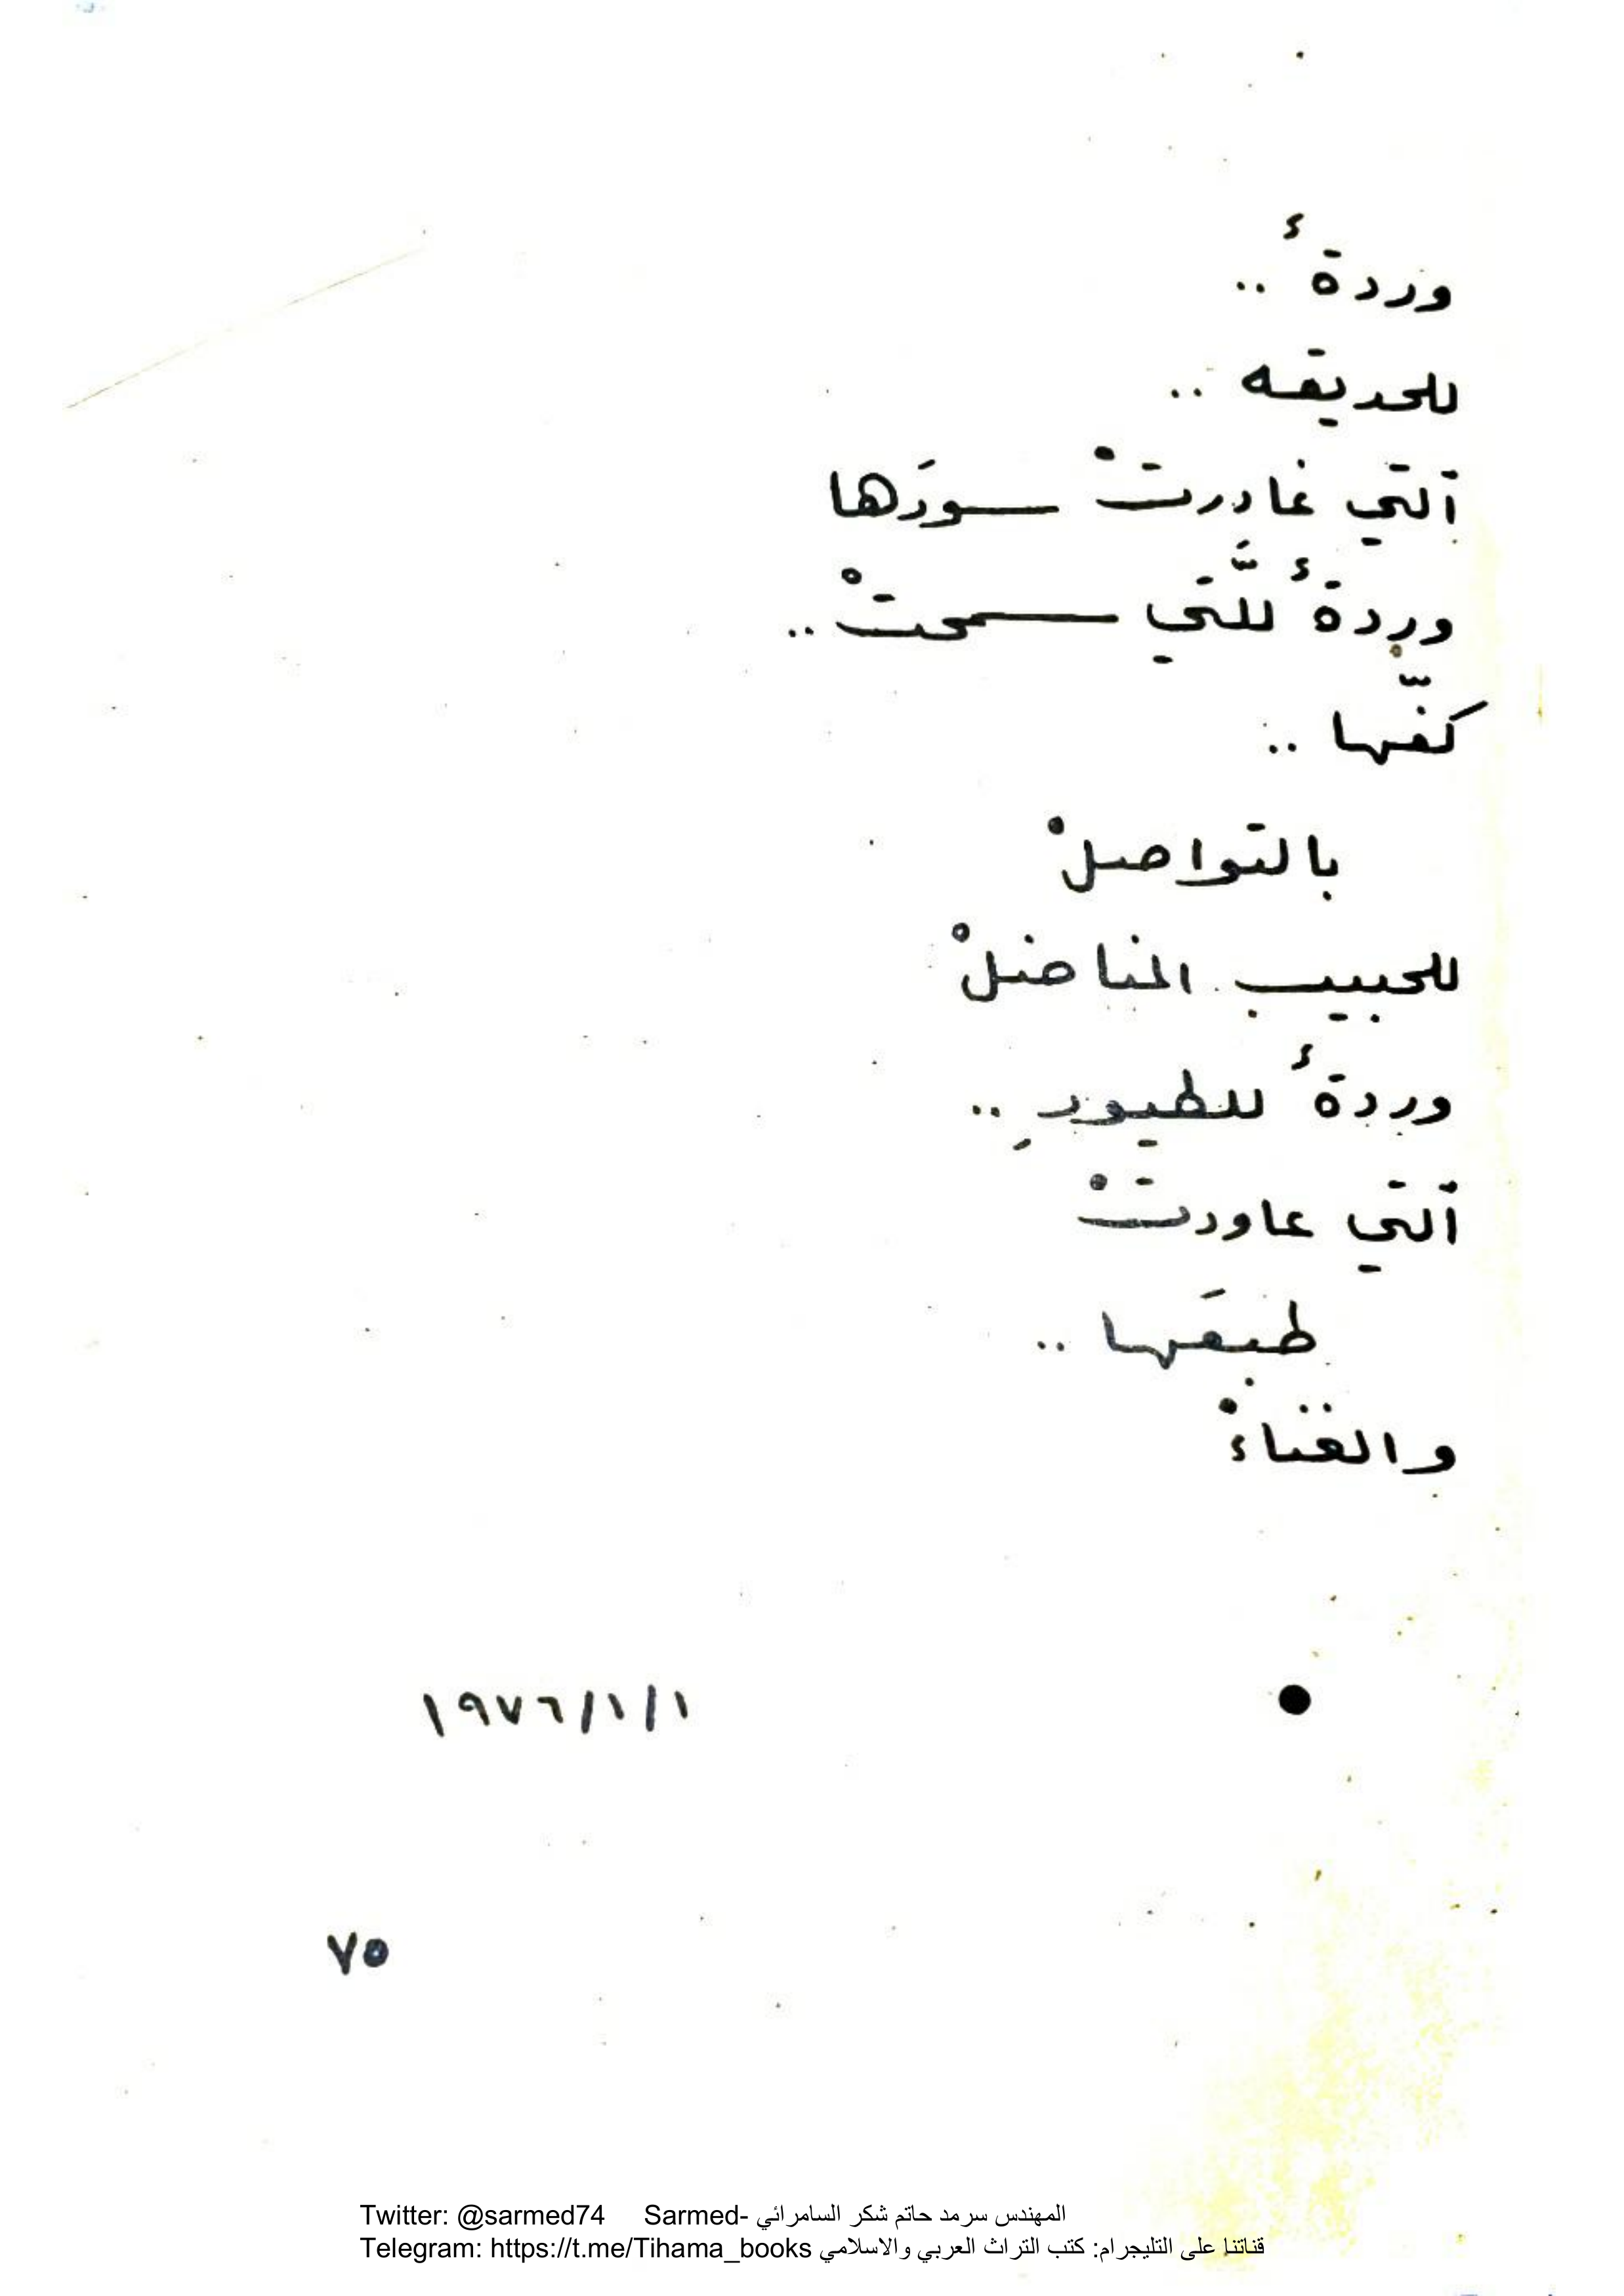 وردةٌ ..
للحديقه ..
آلتي غادرتْ سورَها
وردةٌ للَّتي سمحتْ ..
كفّها ..
بالتواصلْ
للحبيب المناضلْ
وردةٌ للطيورِ ..
آلتي عاودتْ
طبعَها ..
والغناءْ
● ١٩٧٦/١/١
٧٥
Twitter: @sarmed74 Sarmed- المهندس سرمد حاتم شكر السامرائي
Telegram: https://t.me/Tihama_books قناتنا على التليجرام: كتب التراث العربي والاسلامي